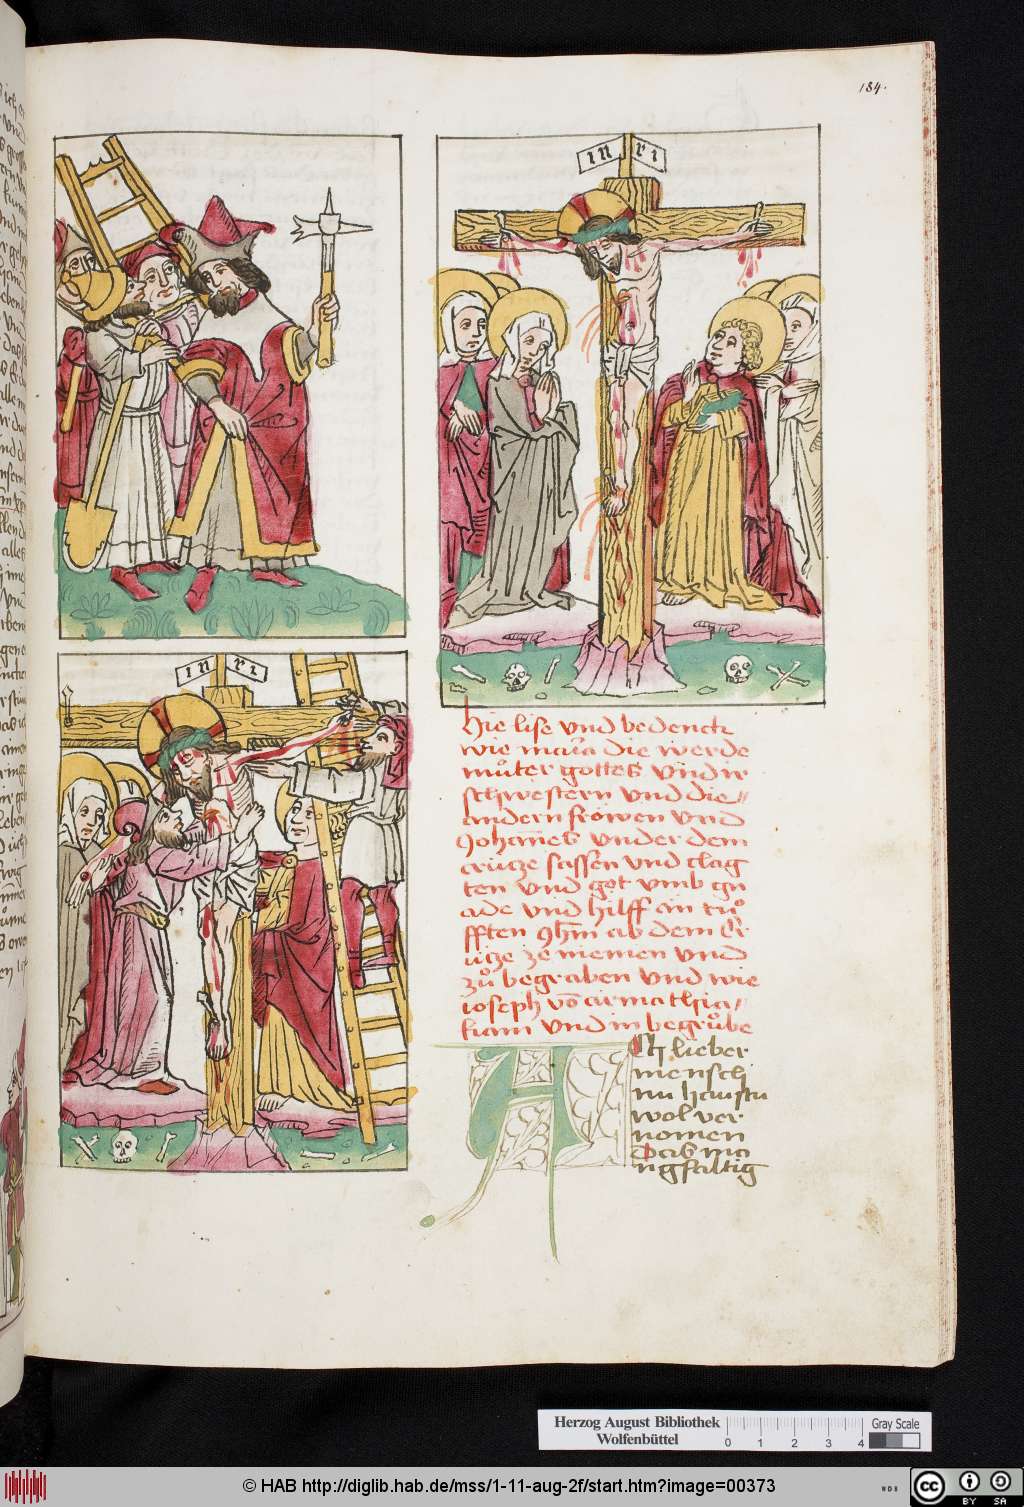 184.
in ri
in ri
Hie lise vnd bedenck
wie maria die werde
můter gottes vnd ir
schwestern vnd die
andern frowen vnd
Johannes vnder dem
crutze sassen vnd clag
ten vnd got vmb gn
ade vnd hilff an růͦ
fften Jhm ab dem Cr
utze ze niemen vnd
zů begraben vnd wie
ioseph vō armathia
kam vnd in begrůbe
ACh lieber
mensch
nu haustu
wol ver
nomen
Das ma
ngfaltig
Herzog August Bibliothek
Wolfenbüttel
0 1 2 3 4
Gray Scale
© HAB http://diglib.hab.de/mss/1-11-aug-2f/start.htm?image=00373
cc BY SA